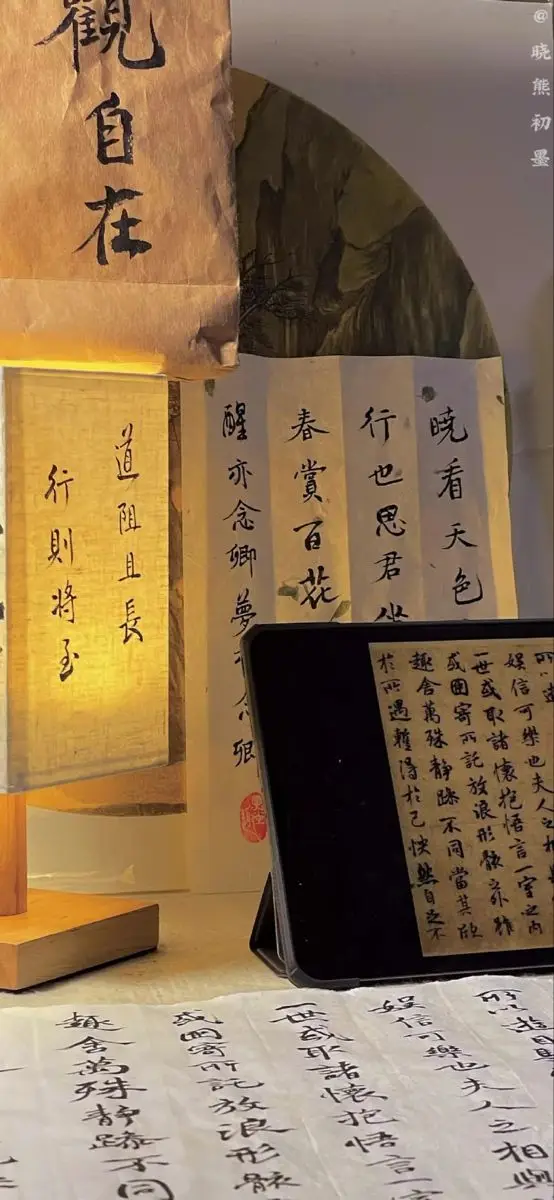 @晓熊初墨
觀自在
道阻且長
行則將至
曉看天色
行也思君
春賞百花
醒亦念卿夢亦念卿
所以遊
娛信可樂也夫人之相
一世或取諸懷抱悟言一室之内
或因寄所託放浪形骸之外雖
趣舍萬殊靜躁不同當其欣
於所遇暫得於己快然自足不
所以遊目
娛信可樂也夫人之相與
一世或取諸懷抱悟言一
或因寄所託放浪形骸
趣舍萬殊靜躁不同